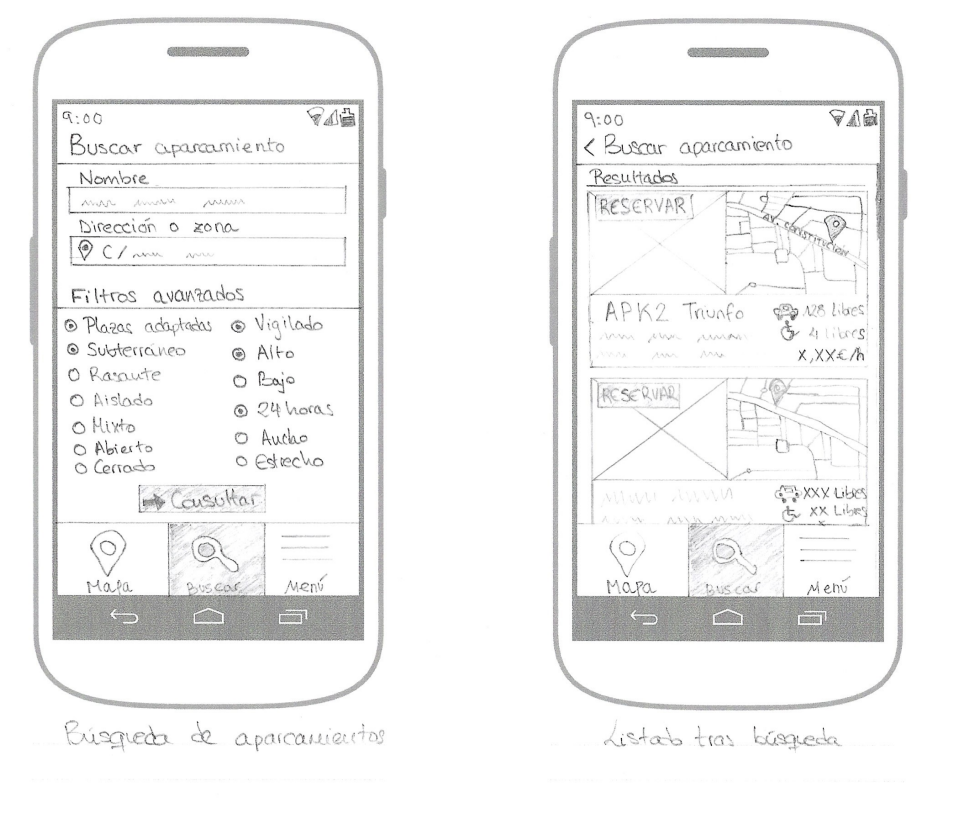 9:00
Buscar aparcamiento
Nombre
Dirección o zona
C/
Filtros avanzados
Plazas adaptadas
Subterráneo
Rasante
Aislado
Mixto
Abierto
Cerrado
Vigilado
Alto
Bajo
24 horas
Ancho
Estrecho
Consultar
Mapa
Buscar
Menú
Búsqueda de aparcamientos
9:00
< Buscar aparcamiento
Resultados
RESERVAR
AV. CONSTITUCIÓN
APK2 Triunfo
128 libres
4 libres
X,XX€/h
RESERVAR
XXX Libres
XX Libres
Mapa
Buscar
Menú
Listado tras búsqueda